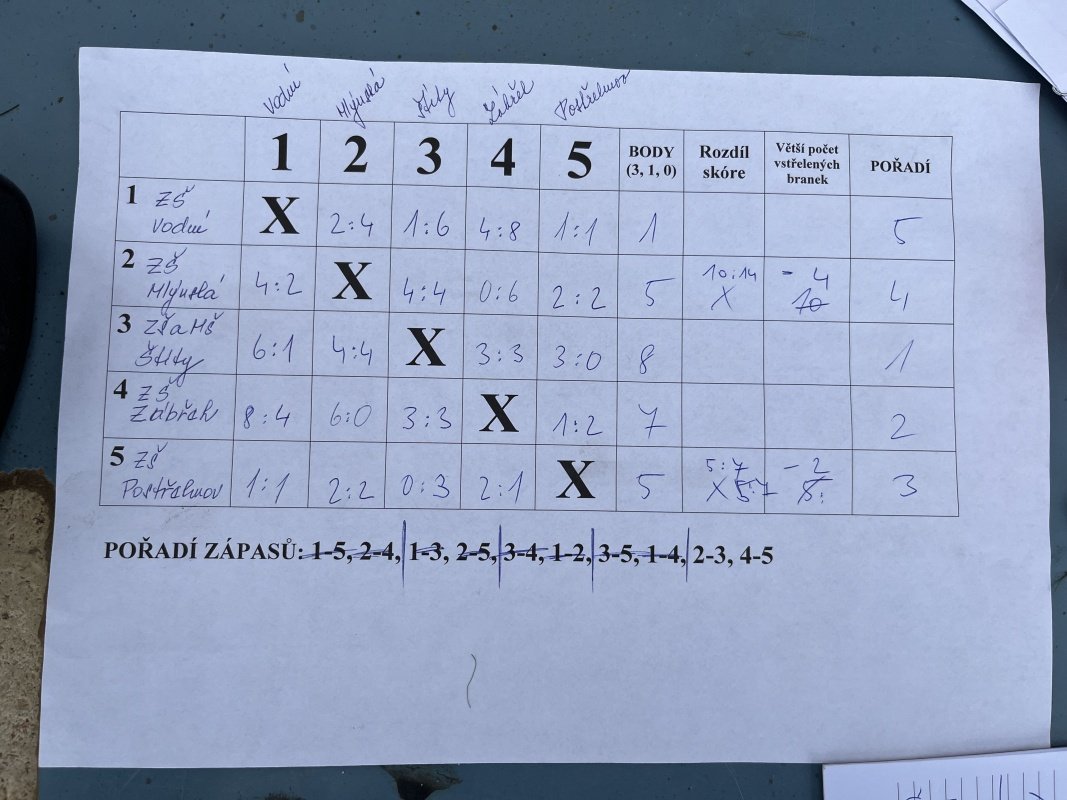 Vodní Mlýnská Štíty Zábřeh Postřelmov
1 2 3 4 5 BODY (3, 1, 0) Rozdíl skóre Větší počet vstřelených branek POŘADÍ
1 ZŠ Vodní X 2:4 1:6 4:8 1:1 1 5
2 ZŠ Mlýnská 4:2 X 4:4 0:6 2:2 5 10:14 X - 4 10 4
3 ZŠ a MŠ Štíty 6:1 4:4 X 3:3 3:0 8 1
4 ZŠ Zábřeh 8:4 6:0 3:3 X 1:2 7 2
5 ZŠ Postřelmov 1:1 2:2 0:3 2:1 X 5 5:7 X 5:7 - 2 5: 3
POŘADÍ ZÁPASŮ: 1-5, 2-4, 1-3, 2-5, 3-4, 1-2, 3-5, 1-4, 2-3, 4-5